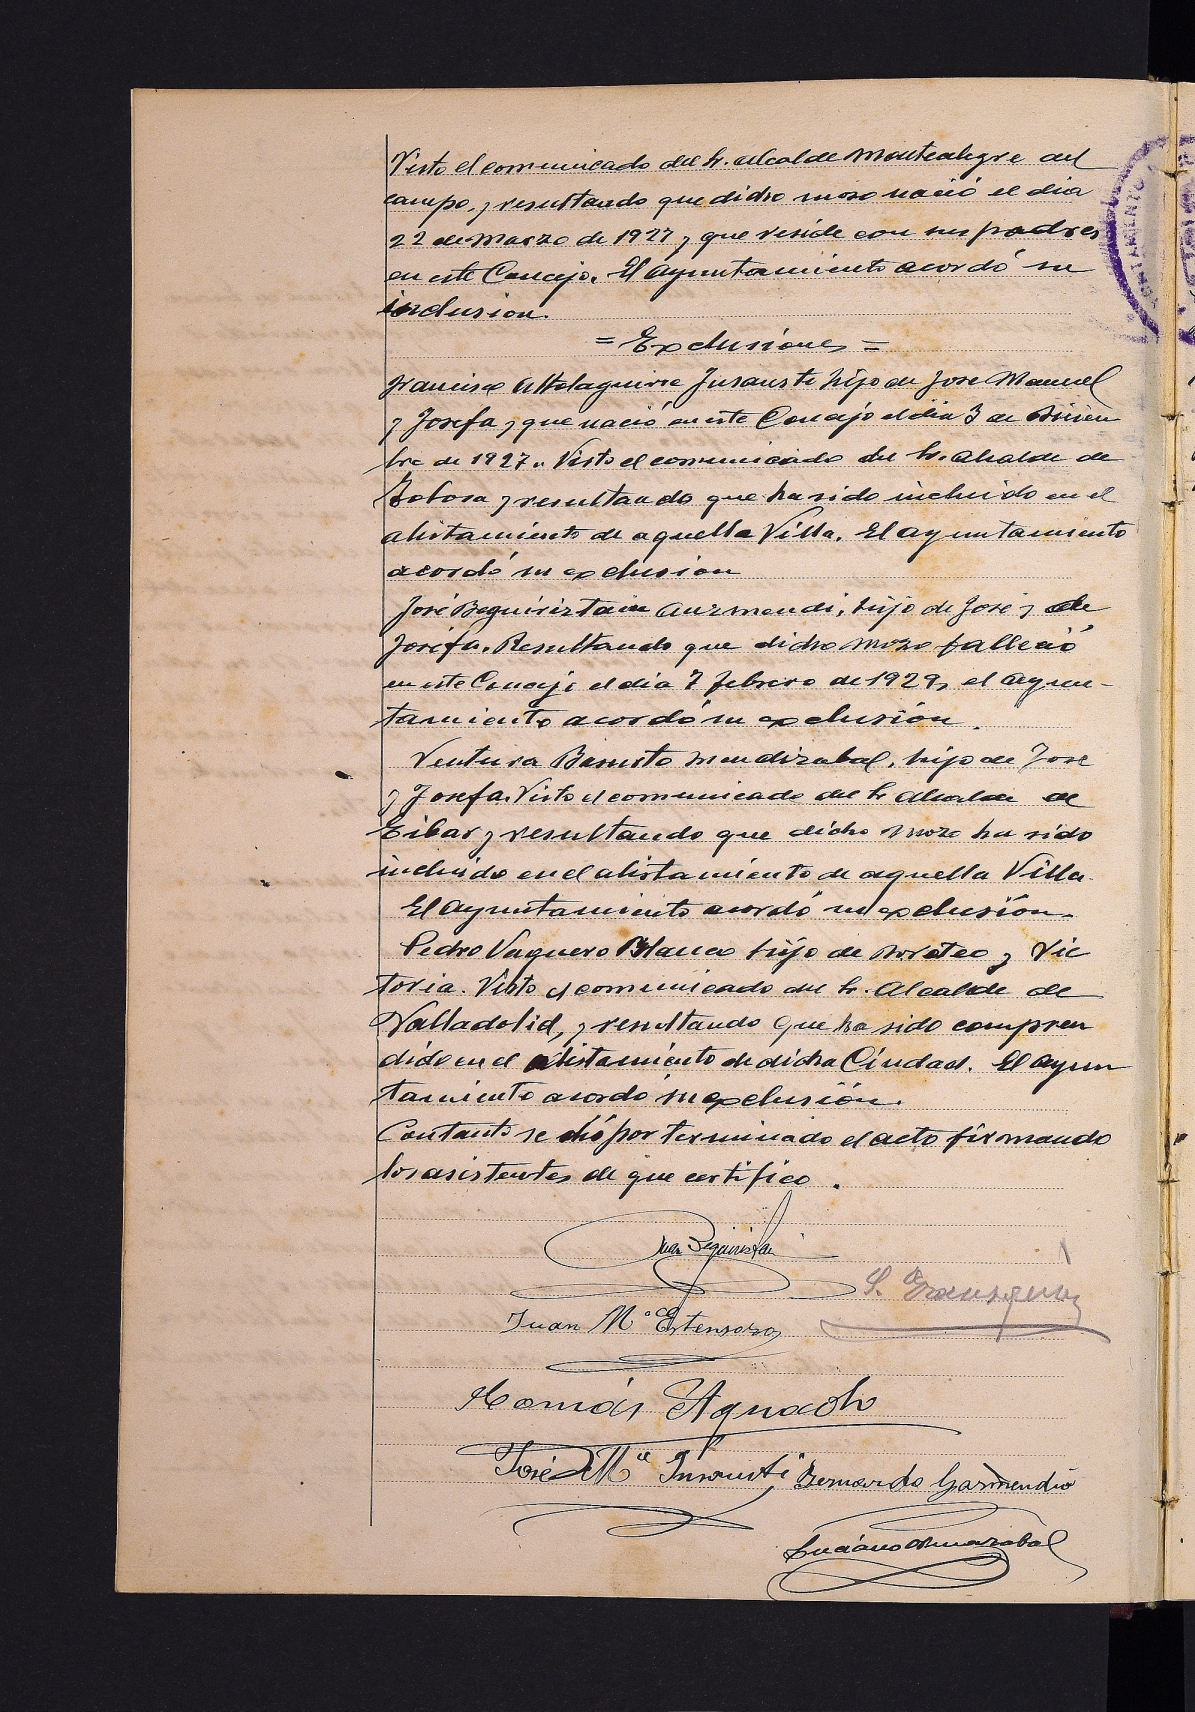 Visto el comunicado del Sr. alcalde Montealegre del
campo, y resultando que dicho mozo nació el dia
22 de Marzo de 1927 y que reside con sus padres
en este Concejo. El ayuntamiento acordó su
inclusion.
= Exclusiónes =
Francisco Altolaguirre Insausti hijo de Jose Manuel
y Josefa y que nació en este Concejo el dia 3 de Diciem
bre de 1927. Visto el comunicado del Sr. alcalde de
Tolosa y resultando que ha sido incluido en el
alistamiento de aquella Villa. El ayuntamiento
acordó su exclusion
José Beguiristain Aurmendi, hijo de José y de
Josefa. Resultando que dicho mozo falleció
en este Concejo el dia 7 febrero de 1929, el ayun-
tamiento acordó su exclusión.
Ventura Mendizabal, hijo de Jose
y Josefa. Visto el comunicado del Sr alcalde de
Eibar y resultando que dicho mozo ha sido
incluido en el alistamiento de aquella Villa.
El Ayuntamiento acordó su exclusión.
Pedro Vaquero Blanco hijo de Doroteo y Vic
toria. Visto el comunicado del Sr. Alcalde de
Valladolid, y resultando que ha sido compren
dido en el alistamiento de dicha Ciudad. El ayun
tamiento acordó su exclusión.
Con tanto se dió por terminado el acto firmando
los asistentes de que certifico.
Juan Beguiristain
S.
Juan Mª Estensoro
Tomás
José Mª Insausti Bernardo Garmendia
Luciano
AYUNTAMIENTO